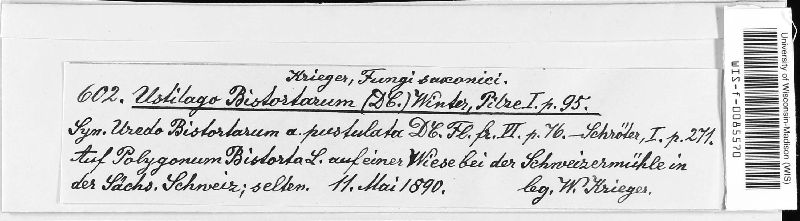 Krieger, Fungi saxonici.
602. Ustilago Bistortarum (DC.) Winter, Pilze I. p. 95.
Syn. Uredo Bistortarum a. pustulata DC. Fl. fr. VI. p. 76. — Schröter, I. p. 271.
Auf Polygonum Bistorta L. auf einer Wiese bei der Schweizermühle in
der Sächs. Schweiz; selten. 11. Mai 1890. leg. W. Krieger.
University of Wisconsin-Madison (WIS)
WIS-f-0085570